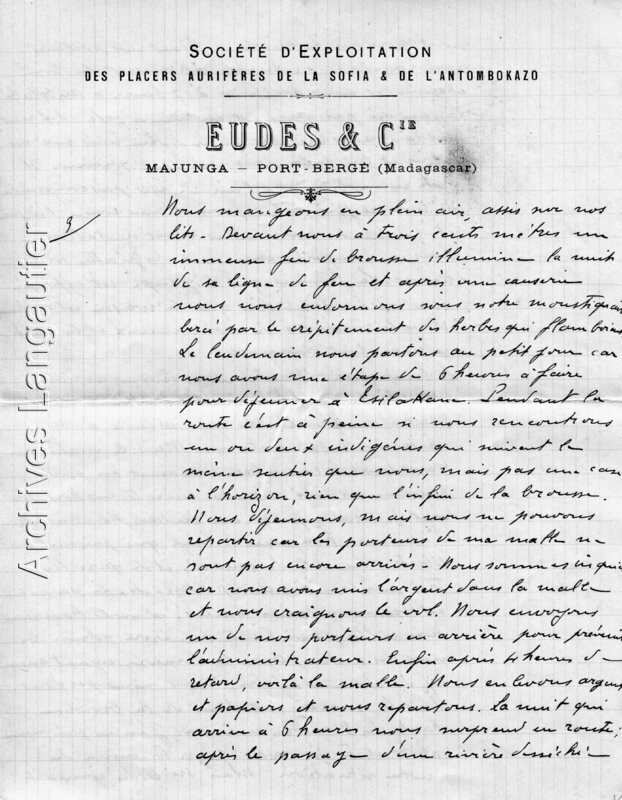 SOCIÉTÉ D'EXPLOITATION
DES PLACERS AURIFÈRES DE LA SOFIA & DE L'ANTOMBOKAZO
EUDES & CIE
MAJUNGA – PORT-BERGÉ (Madagascar)
9
Nous mangeons en plein air, assis sur nos
lits - Devant nous à trois cents mètres un
immense feu de brousse illumine la nuit
de sa ligne de feu et après une causerie
nous nous endormons sous notre moustiquai
bercé par le crépitement des herbes qui flamboien
Le lendemain nous partons au petit jour car
nous avons une étape de 6 heures à faire
pour déjeuner à Pendant la
route c'est à peine si nous rencontrons
un ou deux indigènes qui suivent le
même sentier que nous, mais pas une case
à l'horizon, rien que l'infini de la brousse.
Nous déjeunons, mais nous ne pouvons
repartir car les porteurs de ma malle ne
sont pas encore arrivés - Nous sommes inquie
car nous avons mis l'argent dans la malle
et nous craignons le vol. Nous envoyons
un de nos porteurs en arrière pour préveni
l'administrateur. Enfin après 4 heures de
retard, voilà la malle. Nous enlevons argent
et papiers et nous repartons. La nuit qui
arrive à 6 heures nous surprend en route,
après le passage d'une rivière desséchée
Archives Langautier